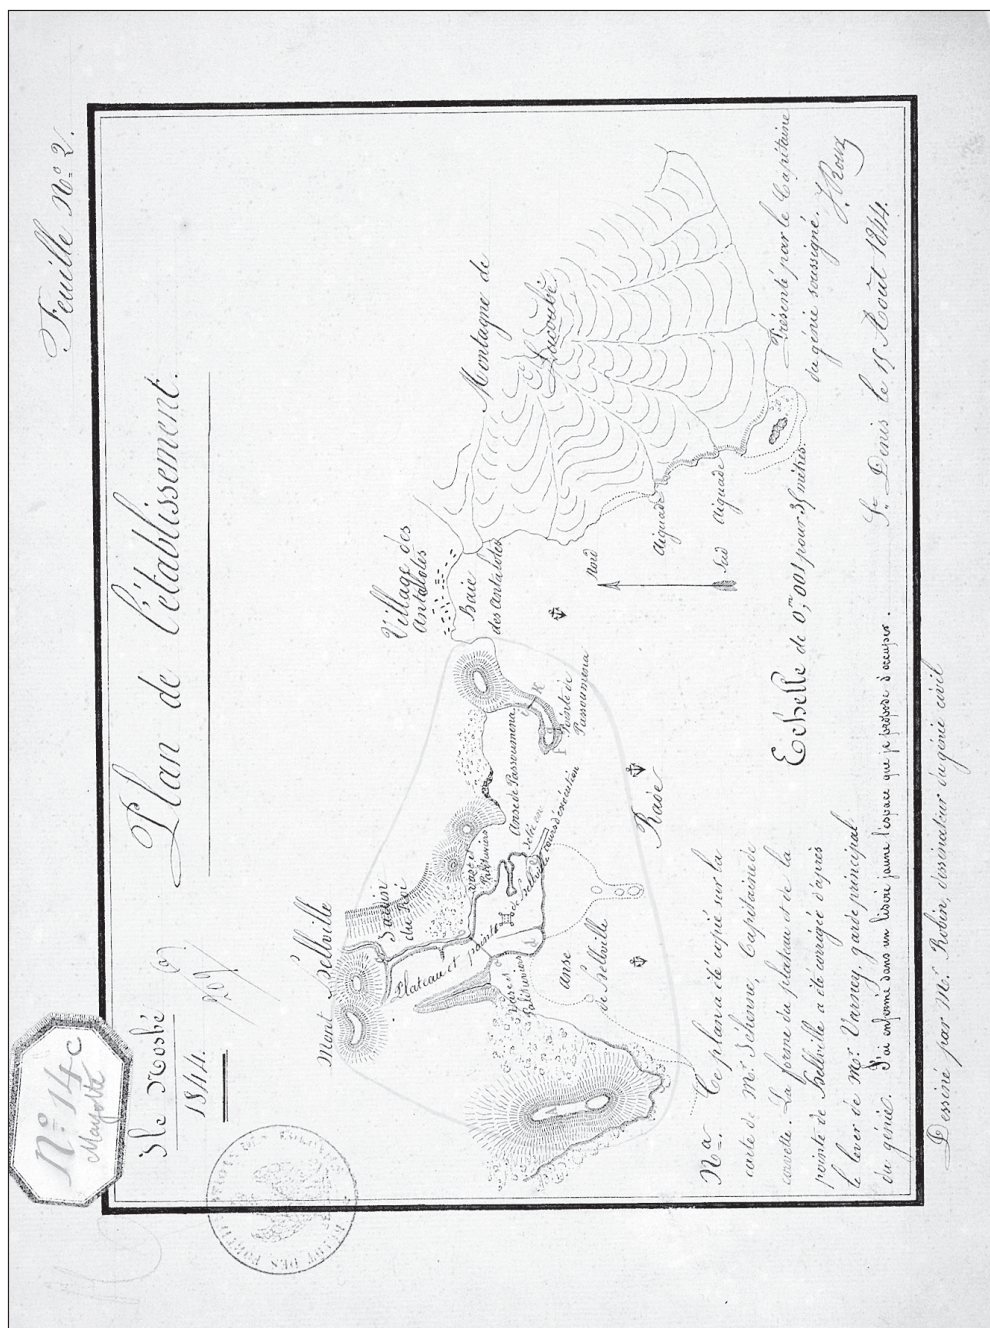 Feuille N.o 2.
N.o 14 C
Mayotte
Ile Nosbé
1844.
Plan de l'établissement.
Mont Hellville
Jardin
du Roi
Plateau et pointe
de Hellville
Vase et
Palétuviers
Vase et
Palétuviers
Anse de Passoumena
Jetée en
cours d'exécution
Pointe de
Passoumena
Anse
de Hellville
Rade
Village des
Antalotes
Baie
des Antalotes
Montagne de
Loucoubé
Nord
Sud
Aiguade
Aiguade
Echelle de 0,m001 pour 35 mètres.
N.a Ce plan a été copié sur la
carte de M.r Jehenne, Capitaine de
corvette. La forme du plateau et de la
pointe de Hellville a été corrigée d'après
le lever de M.r Varney, garde principal
du génie. J'ai enfermé dans un liseré jaune l'espace que je propose d'occuper.
Présenté par le Capitaine
du génie soussigné.
J. Roux
St. Denis le 15 Août 1844.
Dessiné par M.r Robin, dessinateur du génie civil